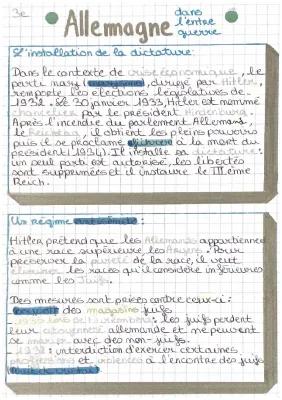 3e
Allemagne dans
l'entre
guerre
L'installation de la dictature:
Dans le contexte de crise économique, le
parti nazi dirigé par Hitler,
remporte les élections législatives de
1932. Le 30 janvier 1933, Hitler est nommé
chancelier par le président Hindenburg.
Après l'incendie du parlement Allemand,
le Reichstag, il obtient les pleins pouvoirs
puis il se proclame à la mort du
président (1934). Il installe sa dictature:
un seul parti est autorisé, les libertés
sont supprimées et il instaure le IIIème
Reich.
Un régime antisémite:
Hitler prétend que les Allemands appartiennent
à une race supérieure les Aryens. Pour
préserver la pureté de la race, il veut
éliminer les races qu'il considère inférieures
comme les Juifs.
Des mesures sont prises contre ceux-ci:
boycott des magasins juifs
lois de Nuremberg: les juifs perdent
leur citoyenneté allemande et ne peuvent
se marier avec des non-juifs.
1938: interdiction d'exercer certaines
professions et violences à l'encontre des juifs
Nuit de cristal